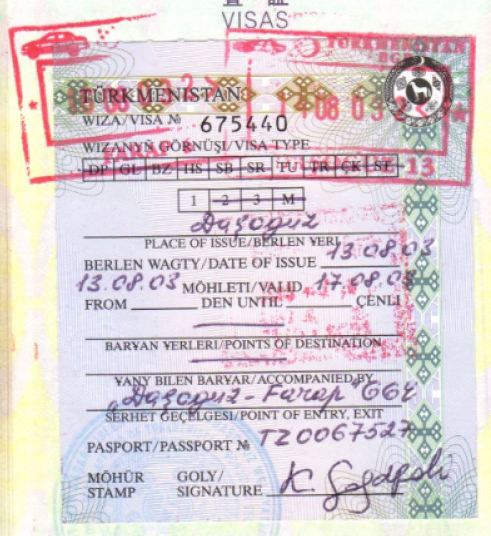 查 証
VISAS
TÜRKMENISTAN
WIZA/VISA № 675440
WIZANYŇ GÖRNÜŞI/VISA TYPE
DP GL BZ HS SB SR TU TR ÇK ST
1 2 3 M
Daşoguz
PLACE OF ISSUE/BERLEN ÝERI
BERLEN WAGTY/DATE OF ISSUE 13.08.03
13.08.03 MÖHLETI/VALID 17.08.03
FROM DEN UNTIL ÇENLI
BARÝAN ÝERLERI/POINTS OF DESTINATION
ÝANY BILEN BARÝAR/ACCOMPANIED BY
"Daşoguz - Farap" GGY
SERHET GEÇELGESI/POINT OF ENTRY, EXIT
PASPORT/PASSPORT № TZ0067527
MÖHÜR GOLY/
STAMP SIGNATURE
TÜRKMENISTAN
FARAP
11 08 03
13